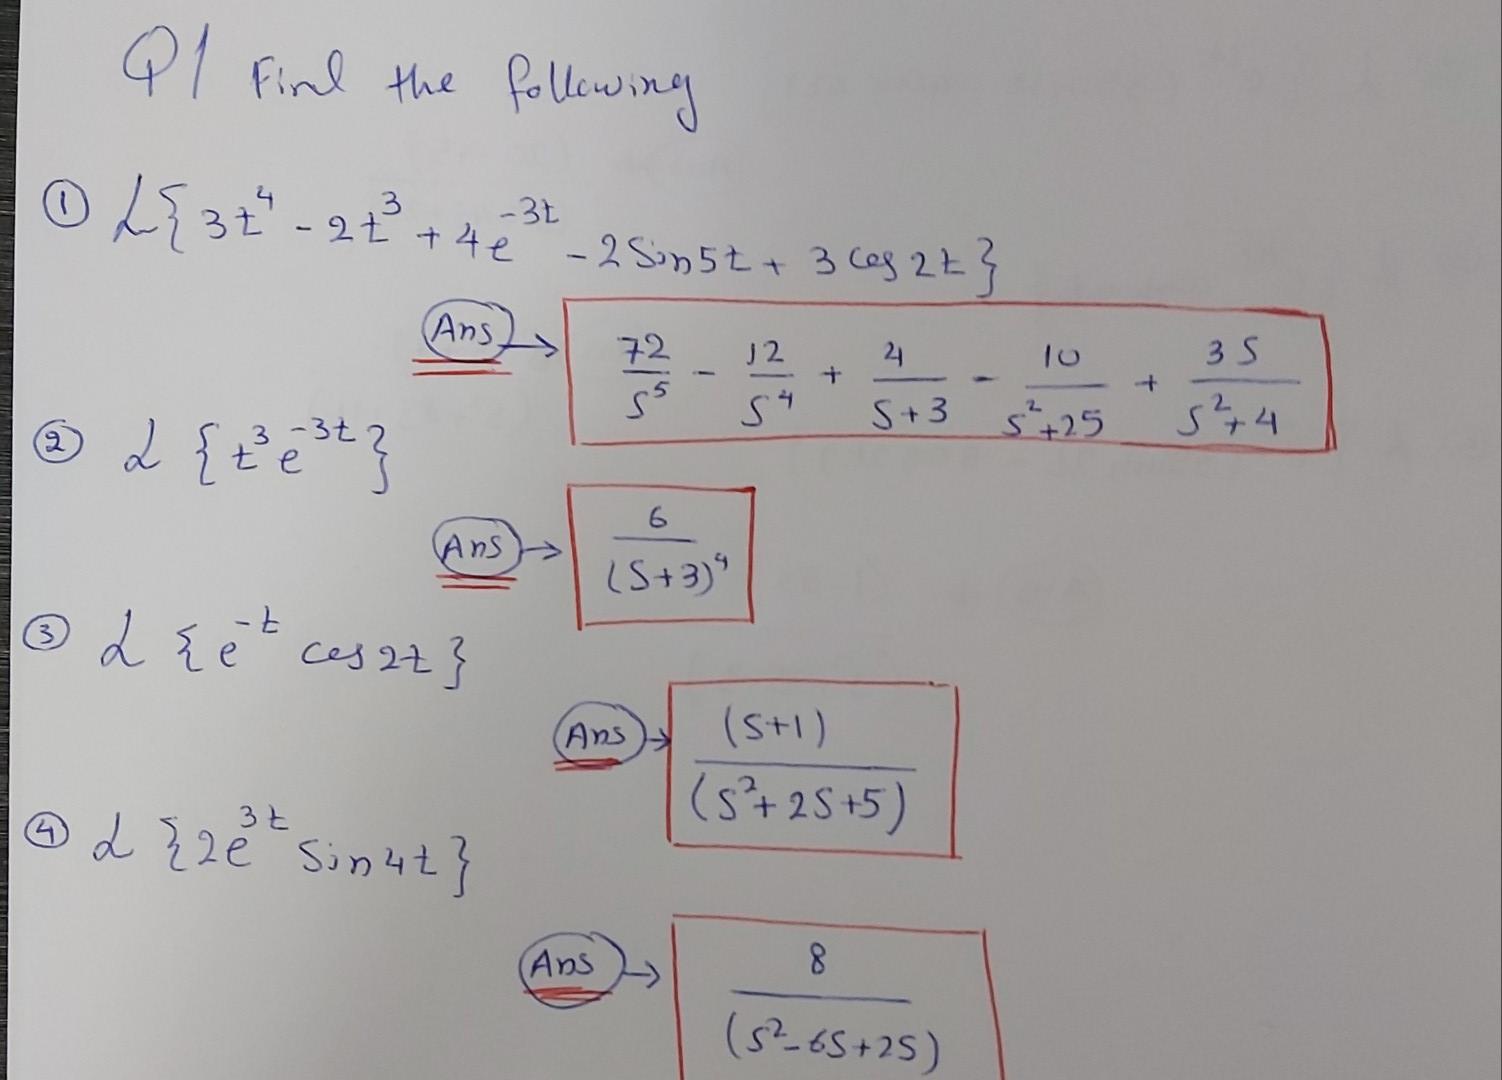 Q1 Find the following
① ℒ{3t⁴ - 2t³ + 4e⁻³ᵗ - 2 Sin5t + 3 cos 2t}
Ans → 72/S⁵ - 12/S⁴ + 4/(S+3) - 10/(S²+25) + 3S/(S²+4)
② ℒ {t³e⁻³ᵗ}
Ans → 6/(S+3)⁴
③ ℒ {e⁻ᵗ cos2t}
Ans → (S+1)/(S²+2S+5)
④ ℒ {2e³ᵗ Sin4t}
Ans → 8/(S²-6S+25)